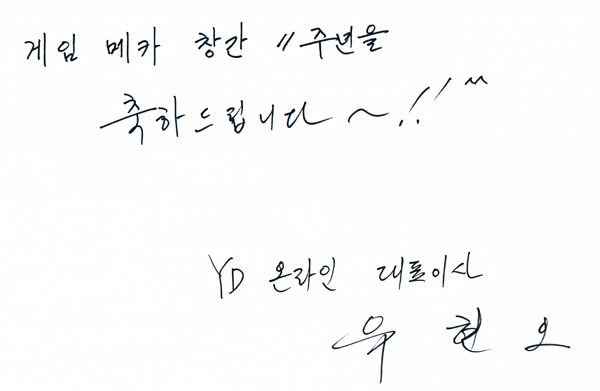 게임 메카 창간 11주년을
축하드립니다~!! ^^
YD 온라인 대표이사
유 현 오